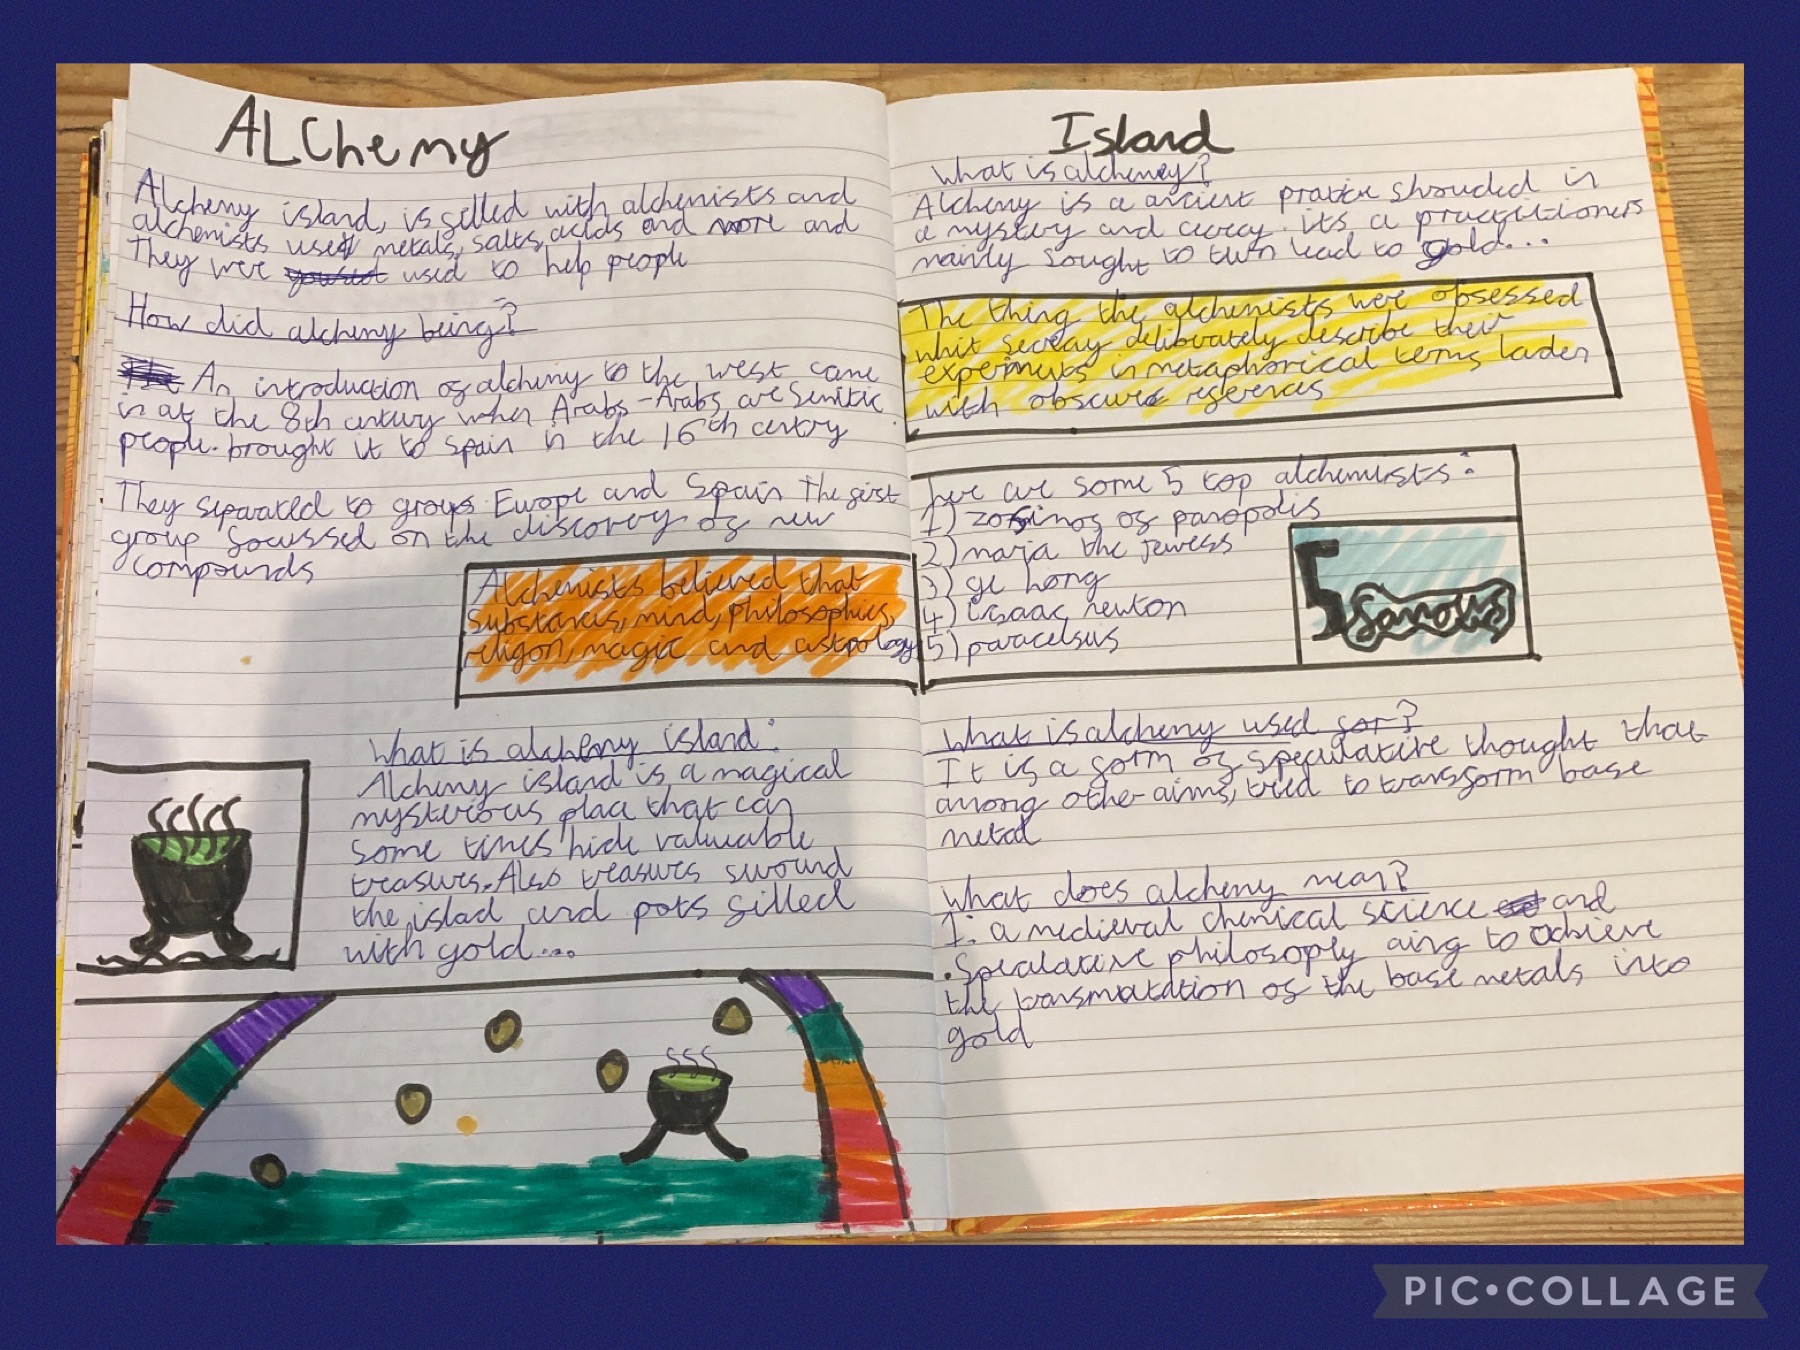 ALChemy
Alchemy island, is filled with alchemists and
alchemists used metals, salts, acids and more and
They were used to help people
How did alchemy being?
An introduction of alchimy to the west came
in at the 8th century when Arabs-Arabs are Semitic
people. brought it to Spain in the 16th centry
They separated to groups Europe and Spain The first
group focussed on the discovery of new
compounds
Alchemists believed that
Substances, mind, philosophies,
religon, magic and astrology
What is alchemy island:
Alchemy island is a magical
mysterious place that can
some times hide valuable
treasures. Also treasures
the islad and pots filled
with gold...
Island
What is alchemey?
Alchemy is a ancient shrouded in
a mystery and its a practitioners
mainly sought to turn lead to gold...
The thing the alchemists were obsessed
whit deliberately describe their
experiments in metaphorical terms laden
with obscure references
here are some 5 top alchemists:
1) zosinos of panopolis
2) maria the jewess
3) ge hong
4) isaac newton
5) paracelsus
5 famous
What is alchemy used for?
It is a form of speculative thought that
among other aims, tried to transform base
metal
What does alchemy mean?
1. a medieval chemical science and
. philosoply aing to achieve
the of the base metals into
gold
PIC•COLLAGE